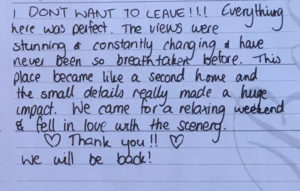 I DON'T WANT TO LEAVE!!! Everything
here was perfect. The views were
stunning & constantly changing & have
never been so breathtaken before. This
place became like a second home and
the small details really made a huge
impact. We came for a relaxing weekend
& fell in love with the scenery.
♡ Thank you!! ♡
We will be back!